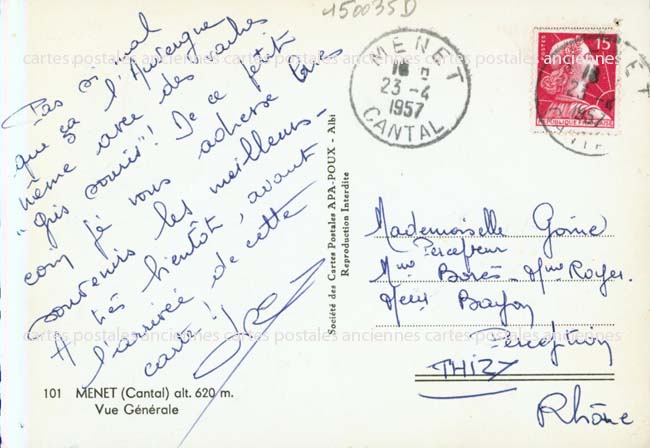 150035D
Pas si mal
que ça l'Auvergne
même avec des vaches
"gris souris"! De ce petit
coin je vous adresse tous
souvenirs les meilleurs -
A très bientôt, avant
l'arrivée de cette
carte!
101 MENET (Cantal) alt. 620 m.
Vue Générale
Société des Cartes Postales APA-POUX - Albi
Reproduction Interdite
MENET
18 H
23 -4
1957
CANTAL
POSTES
15F
Mademoiselle Goine
Percepteur
Mme Borès - Mme Royer
Bajon
Perception
THIZY
Rhône
cartes postales anciennes cartes postales anciennes cartes postales anciennes
cartes postales anciennes cartes postales anciennes cartes postales anciennes